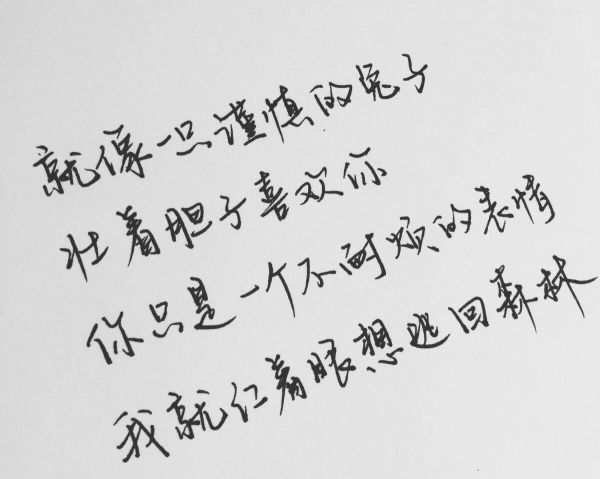 就像一只谨慎的兔子
壮着胆子喜欢你
你只是一个不耐烦的表情
我就红着眼想逃回森林